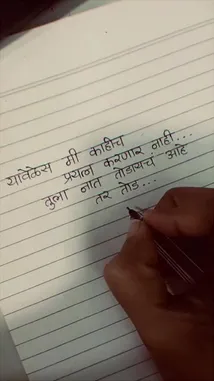 यावेळेस मी काहीच
प्रयत्न करणार नाही...
तुला नातं तोडायचं आहे
तर तोड...